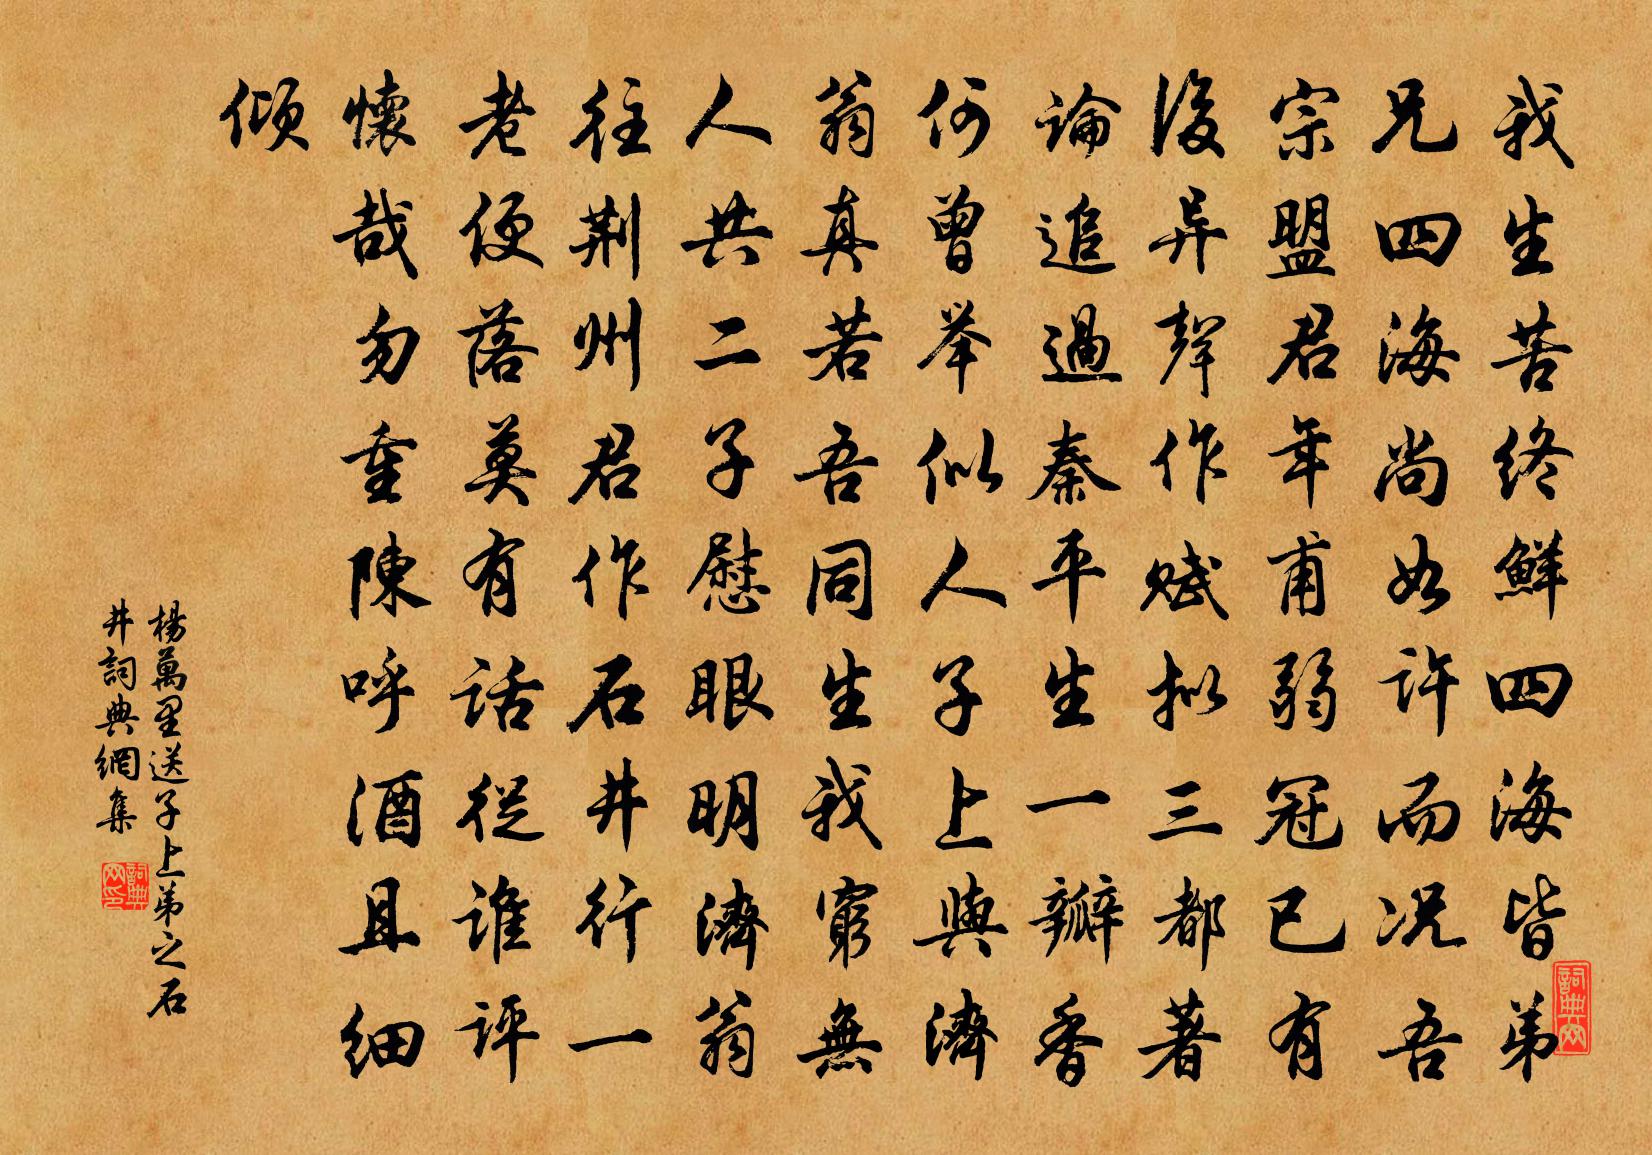 我生苦终鮮四海皆弟
兄四海尚如许而况吾
宗盟君年甫弱冠已有
後异聲作赋拟三都著
論追過秦平生一瓣香
何曾举似人子上與濟
翁真若吾同生我窮無
人共二子慰眼明濟翁
往荆州君作石井行一
老便落莫有话從誰评
懷哉勿重陳呼酒且细
倾
楊萬里送子上弟之石
井詞典網集
詞典网
詞典网印